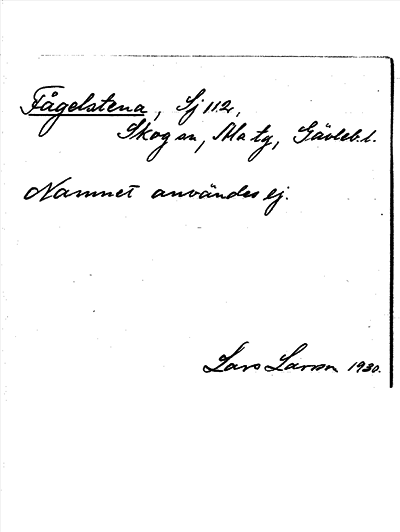 Fågelstena, Sj 112,
Skog sn, Ala tg, Gävleb. l.
Namnet användes ej.
Lars Larson 1930.